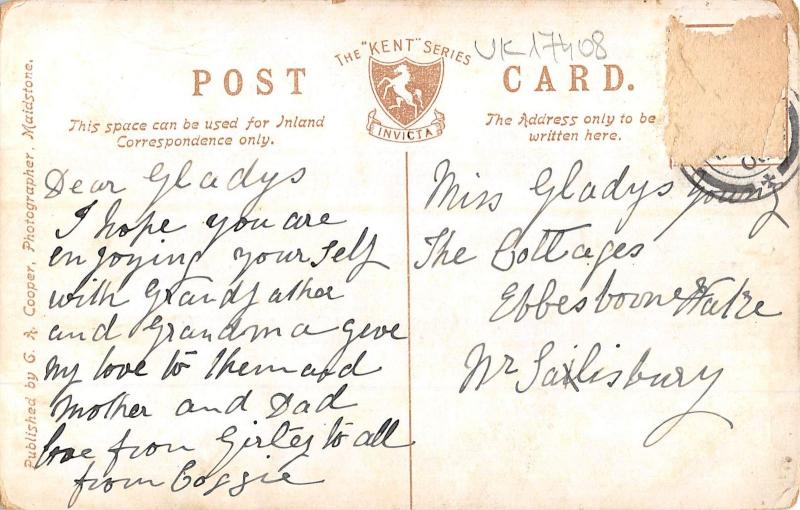 THE "KENT" SERIES
UK17408
POST CARD.
INVICTA
This space can be used for Inland
Correspondence only.
The Address only to be
written here.
Published by G. A. Cooper, Photographer, Maidstone.
Dear Gladys
I hope you are
enjoying your self
with Grandfather
and Grandma give
my love to them and
Mother and Dad
love from to all
from
Miss Gladys Young
The Cottages
Ebbesborne Wake
Nr Sailisbury